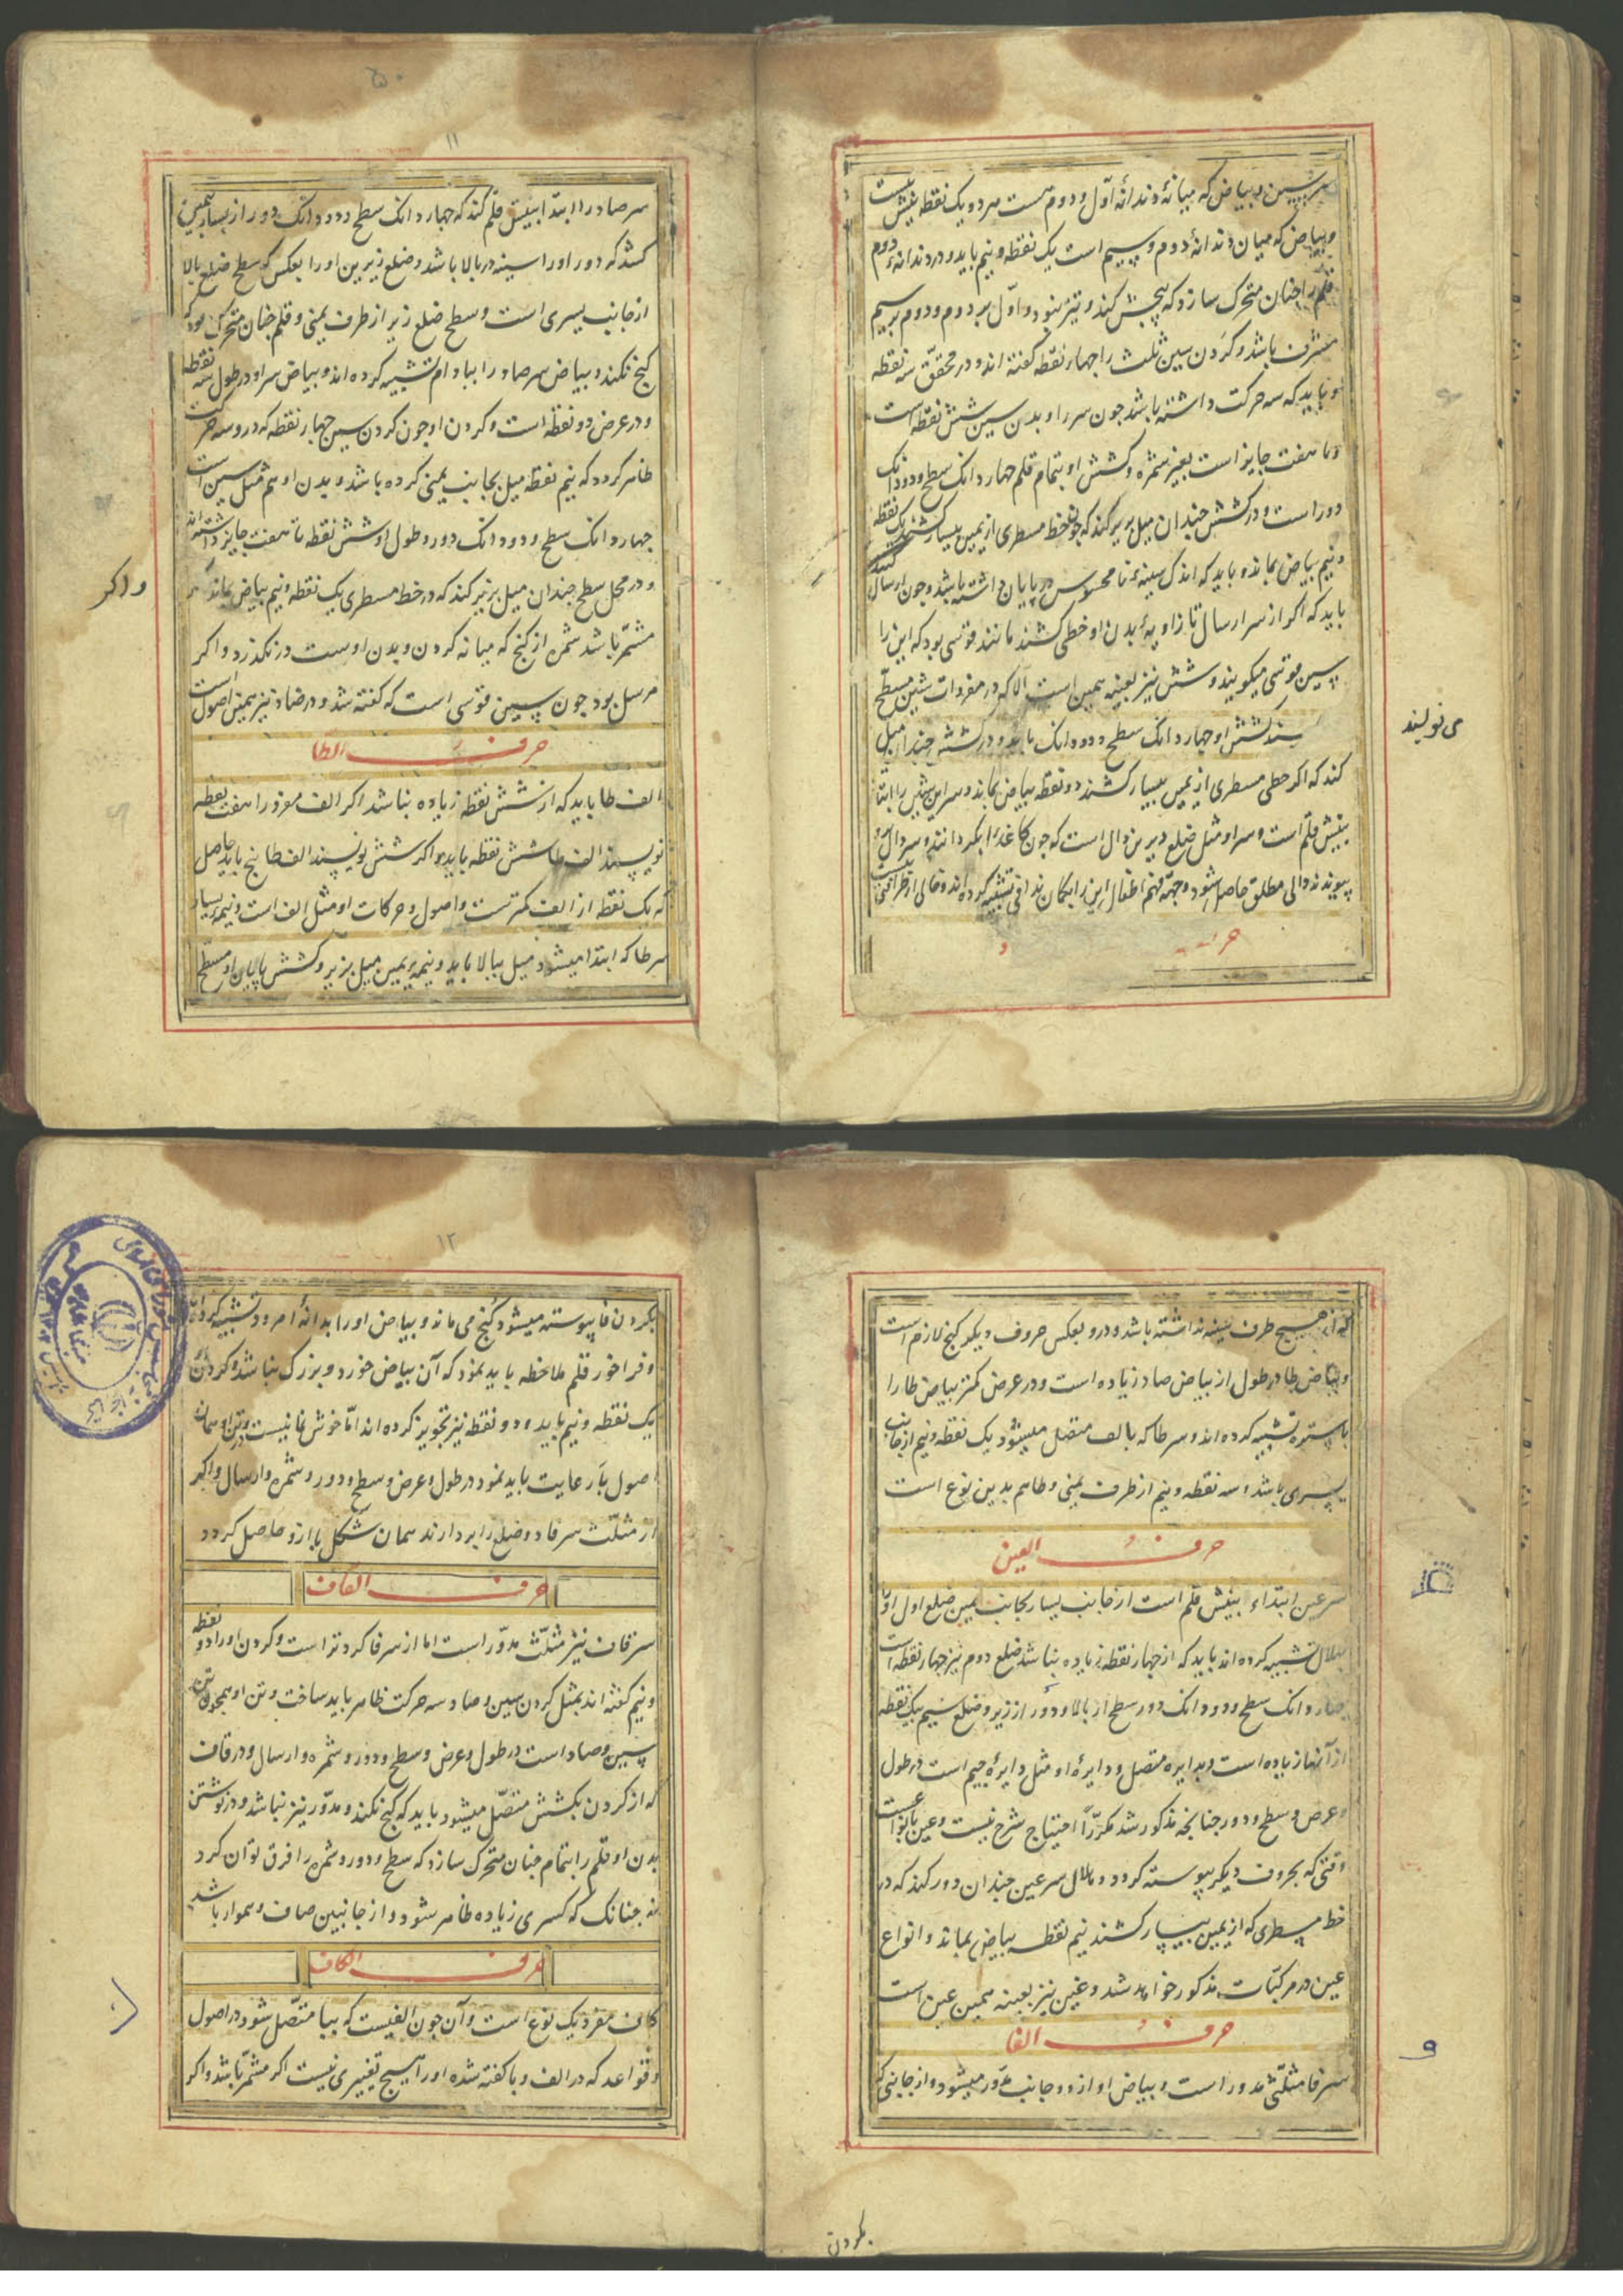 سر سین و بیاض که میانهٔ دندانهٔ اول و دوم است مرد و یک نقطه بیش نیست
و بیاض که میان دندانهٔ دوم و سیم است یک نقطه و نیم باید و در دندانهٔ دوم
قلم را چنان متحرک سازد که پیچش کند و تیز نبود و اول بر دوم و دوم بر سیم
مشرف باشد و کردن سین ثلث را چهار نقطه گفته اند و در محقق سه نقطه
و باید که سه حرکت داشته باشد چون سر را و بدن سین شش نقطه است
و تا هفت جایز است بغیر شمره و کشش او بتمام قلم چهار دانک سطح و دو دانک
دور است و در کشش چندان میل بزیر کند که چون خط مسطری از یمین بیسار کشند یک نقطه
و نیم بیاض بماند و باید که اندک سینهٔ نامحسوس در پایان داشته باشد و چون ارسال کنند
باید که اکر از سر ارسال تا زاویهٔ بدن او خطی کشند مانند قوسی بود که این را
سین قوسی میگویند و شین نیز بعینه همین است الا که در مفردات شین مسطح
می نویسند
کشش او چهار دانک سطح و دو دانک باید و در کشش چندان میل
کند که اکر خطی مسطری از یمین بیسار کشند دو نقطه بیاض بماند و سر این شین را ابتدا
بنیش قلم است و سر او مثل ضلع زیرین دال است که چون کاغذ را بکردانند و سر دال
پیوندند دالی مطلق حاصل شود و جهة فهم اطفال این را بکمان ندافی تشبیه کرده اند
حرف
سر صاد را ابتدا بنیش قلم کند که چهار دانک سطح و دو دانک دور از یسار بیمین
کشد که دور او را سینه در بالا باشد و ضلع زیرین او را بعکس که سطح ضلع بالا
از جانب یسری است و سطح ضلع زیر از طرف یمنی و قلم چنان متحرک بود که
کنج نکند و بیاض سر صاد را ببادام تشبیه کرده اند و بیاض سر او در طول سه نقطه
و در عرض دو نقطه است و کردن او چون کردن سین چهار نقطه که درو سه حرکت
ظاهر کردد که نیم نقطه میل بجانب یمنی کرده باشد و بدن او هم مثل سین است
چهار دانک سطح و دو دانک دور و طول او شش نقطه تا هفت جایز داشته اند
و در محل سطح چندان میل بزیر کند که در خط مسطری یک نقطه و نیم بیاض بماند
و اکر
مشمر باشد شمره از کنج که میانه کردن و بدن اوست در نکذرد و اکر
مرسل بود چون سین قوسی است که گفته شد و در ضاد نیز همین اصول است
حرف الطا
الف طا باید که از شش نقطه زیاده نباشد اکر الف مفرد را هفت نقطه
نویسند الف طا شش نقطه باید و اکر شش نویسند الف طا پنج باید حاصل
که یک نقطه از الف کمترست و اصول و حرکات او مثل الف است و نیمه یسار
سر طا که ابتدا میشود میل ببالا باید و نیمه یمین میل بزیر و کشش پایان او مسطح
که از هیچ طرف سینه نداشته باشد و درو بعکس حروف دیکر کنج لازم است
و بیاض طا در طول از بیاض صاد زیاده است و در عرض کمتر بیاض طا را
باستره تشبیه کرده اند و سر طا که بالف متصل میشود یک نقطه و نیم از جانب
یسری باشد و سه نقطه و نیم از طرف یمنی و ظا هم بدین نوع است
حرف العین
سر عین ابتداء بنیش قلم است از جانب یسار بجانب یمین ضلع اول او را
بهلال تشبیه کرده اند باید که از چهار نقطه زیاده نباشد ضلع دوم نیز چهار نقطه است
چهار دانک سطح و دو دانک دور سطح از بالا و دور از زیر و ضلع سیم یک نقطه
از آنها زیاده است و بدایره متصل و دایرهٔ او مثل دایرهٔ جیم است در طول
و عرض و سطح و دور چنانچه مذکور شد مکرراً احتیاج شرح نیست و عین
وقتی که بحروف دیکر پیوسته کردد و هلال سر عین چندان دور کند که در
خط مسطری که از یمین بیسار کشند نیم نقطه بیاض بماند و انواع
عین در مرکبات مذکور خواهد شد و غین نیز بعینه همین عین است
حرف الفا
و
سر فا مثلثی مدور است و بیاض او از دو جانب مدور میشود و از جانبی که
بکردن
۱۲
بکردن فا پیوسته میشود کنج می ماند و بیاض او را بدانهٔ امرود تشبیه کرده اند
و فراخور قلم ملاحظه باید نمود که آن بیاض خورد و بزرک نباشد و کردن
یک نقطه و نیم باید و دو نقطه نیز تجویز کرده اند اما خوش نما نیست و تن او همان
اصول با رعایت باید نمود در طول و عرض و سطح و دور و شمره و ارسال و اکر
از مثلث سر فا دو ضلع را بردارند همان شکل با ازو حاصل کردد
حرف القاف
سر قاف نیز مثلث مدور است اما از سر فا کردتر است و کردن او را دو نقطه
و نیم گفته اند بمثل کردن سین و صاد سه حرکت ظاهر باید ساخت و تن او همچون تن
سین و صاد است در طول و عرض و سطح و دور و شمره و ارسال و در قاف
که از کردن بکشش متصل میشود باید که کنج نکند و مدور نیز نباشد و در نوشتن
بدن او قلم را بتمام چنان متحرک سازد که سطح و دور و شمره را فرق توان کرد
نه چنانک که کسری زیاده ظاهر شود و از جانبین صاف و هموار باشد
حرف الکاف
کاف مفرد یک نوع است و آن چون الفیست که ببا متصل شود در اصول
و قواعد که در الف و با گفته شده او را هیچ تغییری نیست اکر مشمر باشد و اکر